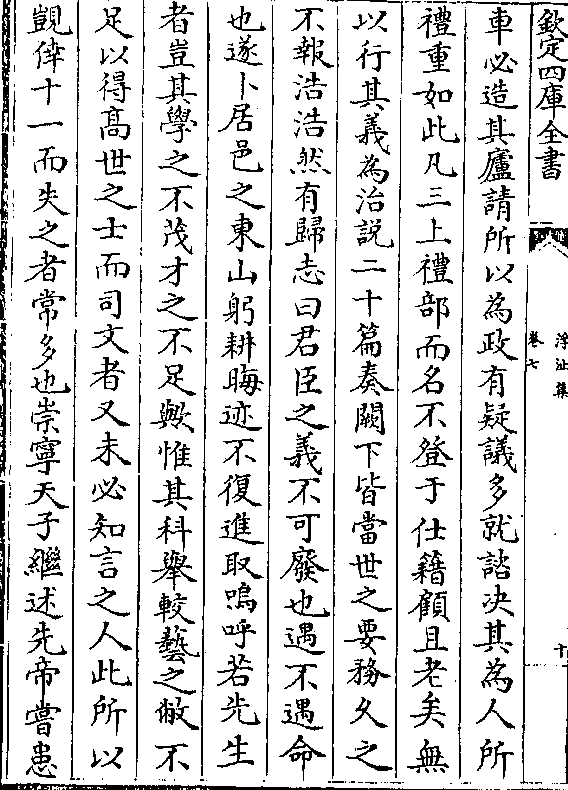 欽定四庫全書
涂𣲖集
卷七
十
車必造其廬請所以為政有疑議多就諮決其為人所
禮重如此凡三上禮部而名不登于仕籍顧且老矣無
以行其義為治説二十篇奏闕下皆當世之要務久之
不報浩浩然有歸志曰君臣之義不可廢也遇不遇命
也遂卜居邑之東山躬耕晦迹不復進取嗚呼若先生
者豈其學之不茂才之不足歟惟其科舉較藝之敝不
足以得髙世之士而司文者又未必知言之人此所以
覬倖十一而失之者常多也崇寧天子繼述先帝嘗患